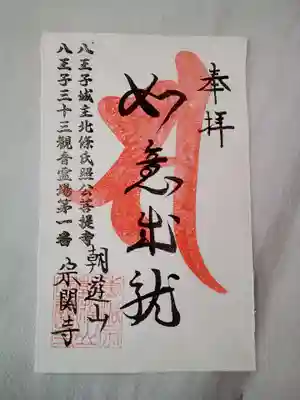 奉拝
如意成就
八王子城主北條氏照公菩提寺
八王子三十三観音霊場第一番
朝遊山
宗関寺